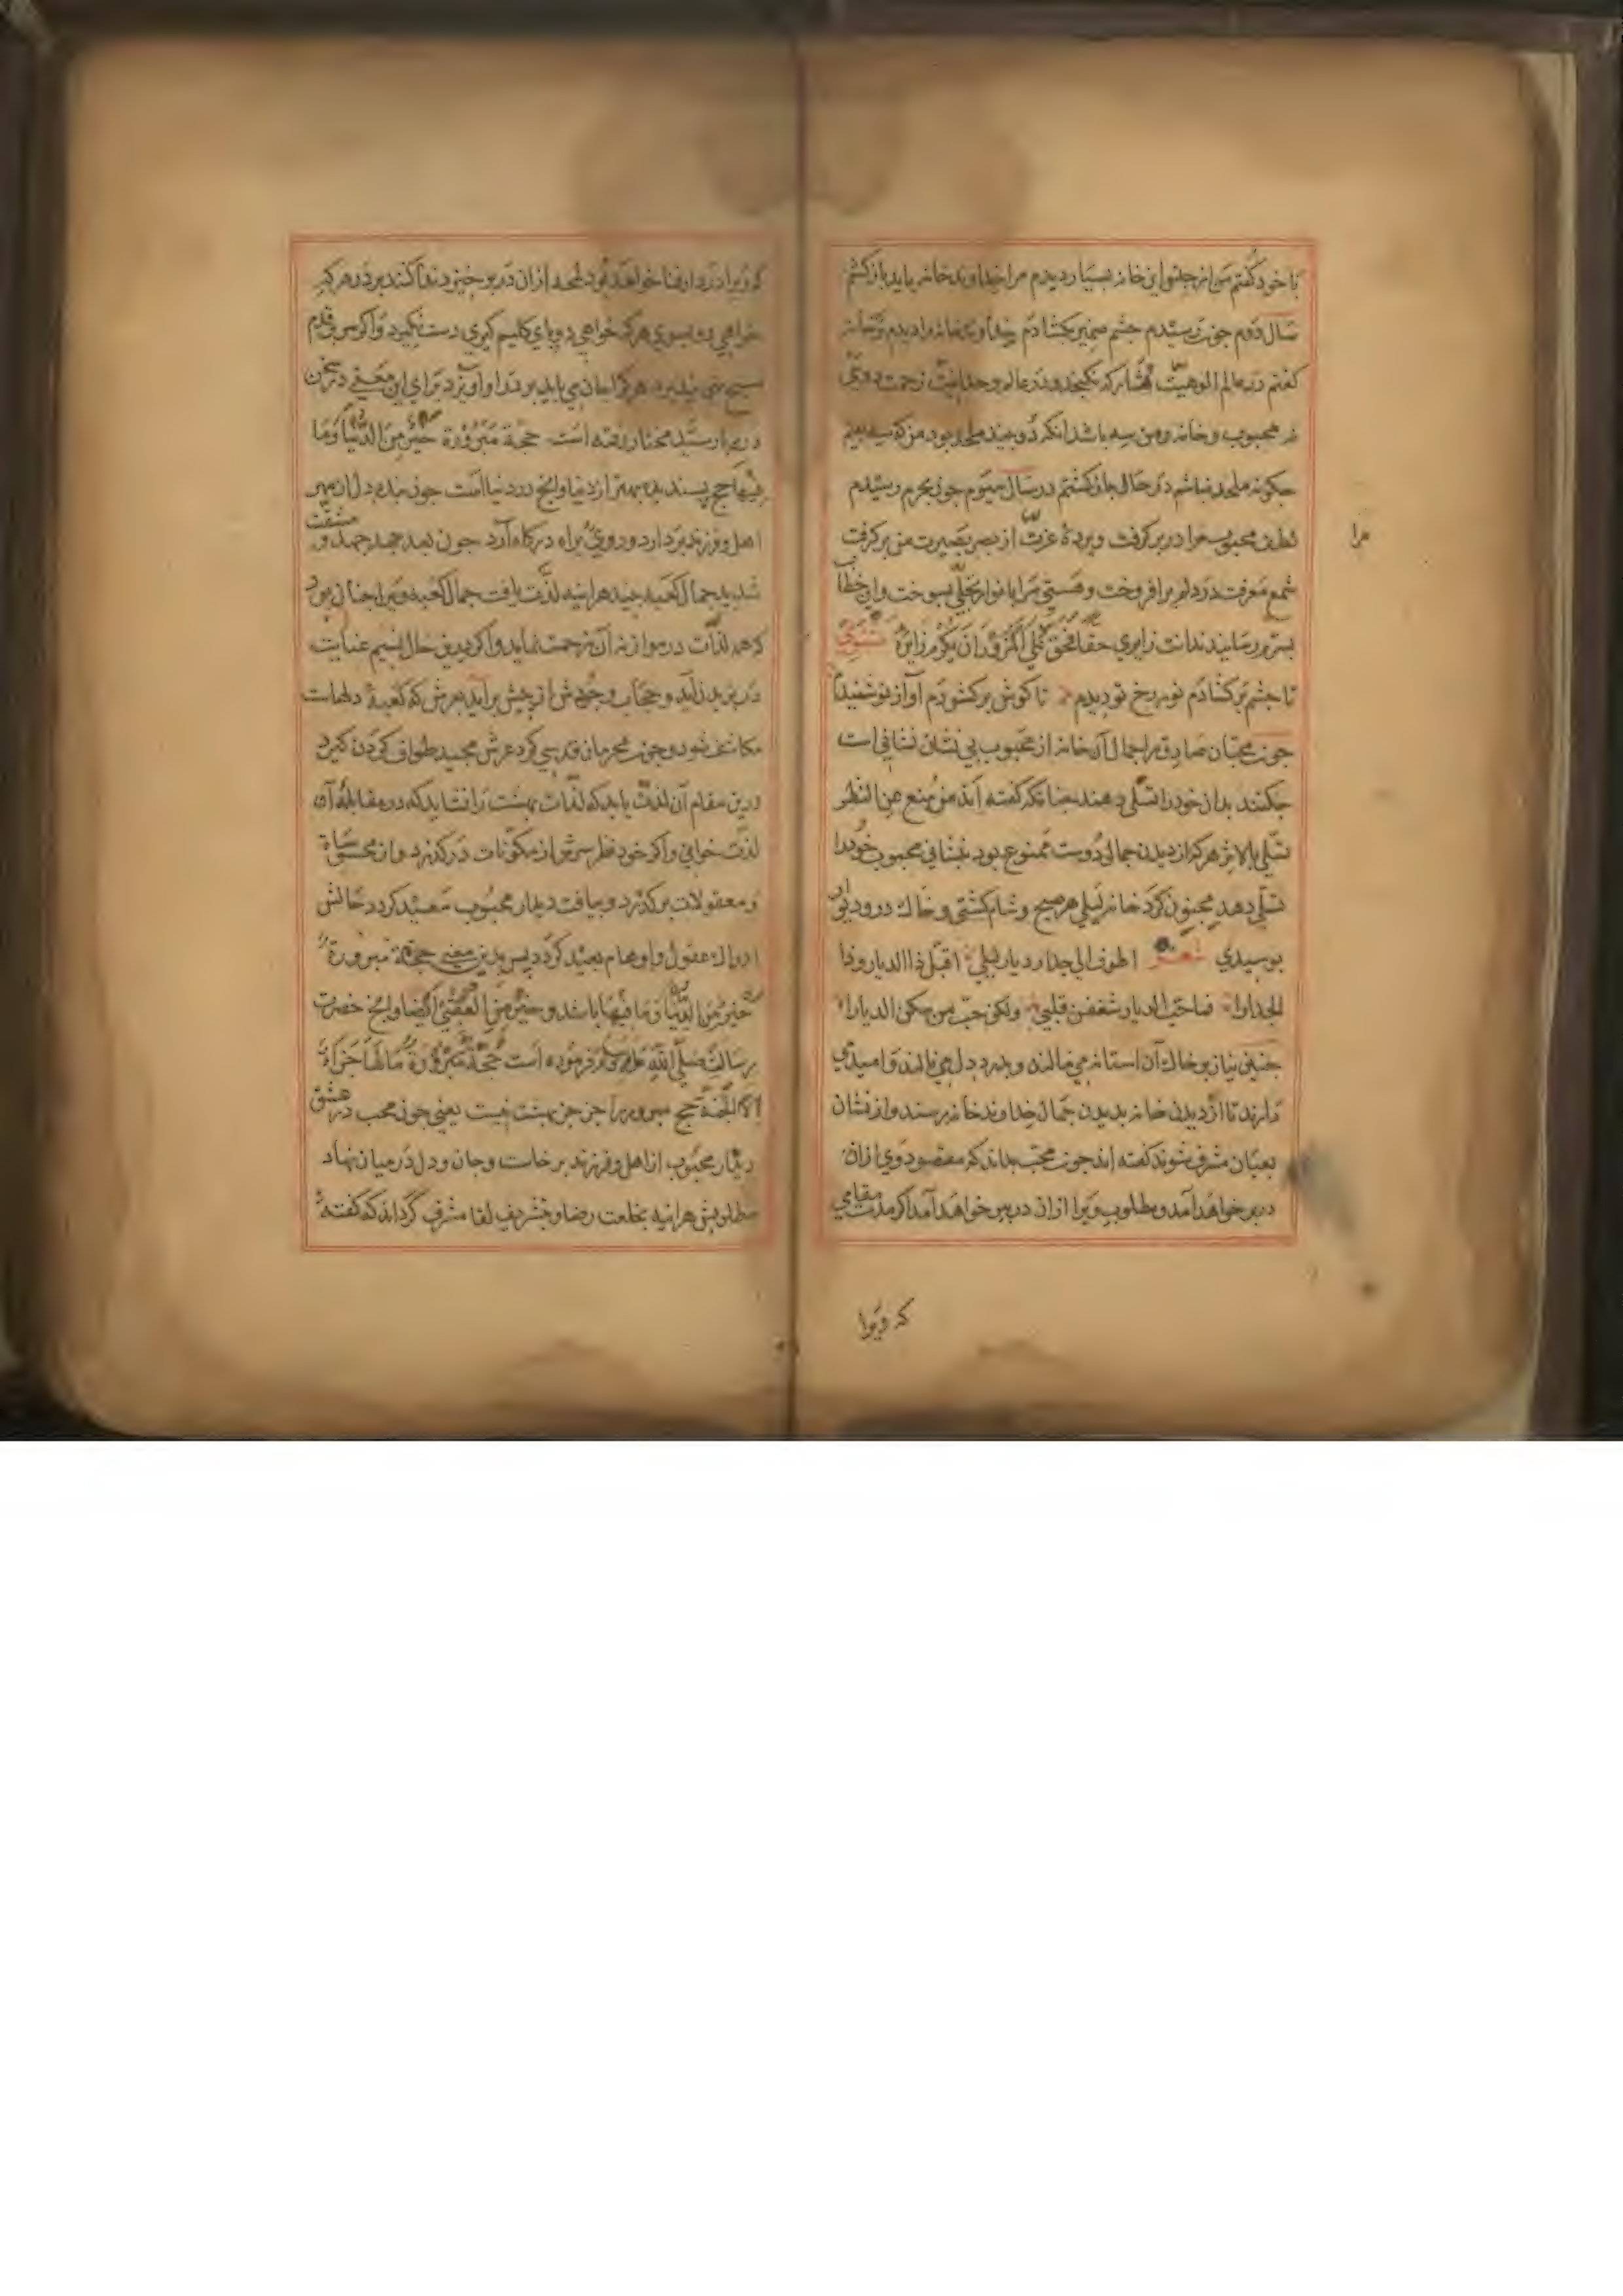 با خود گفتم من از جنس این خانه بسیار دیدم مرا خداوند خانه باید باز گشتم
سال دوم چون رسیدم چشم ضمیر بکشادم خداوند خانه را دیدم و خانه
گفتم در عالم الوهیت مشارکه نکنجد و در عالم وحدانیت زحمت دویی
نه محبوب و خانه و من سه باشد آنکه دو بیند ملحد بود من که سه بینم
چکونه ملحد نباشم در حال باز کشتم در سال سیوم چون بحرم رسیدم
لطف محبوب مرا در بر کرفت و پردهٔ عزت از بصر بصیرت من بر کرفت
شمع معرفت در دلم برافروخت و هستی مرا بانوار تجلی بسوخت و این خطاب
بسرم رسانیدند انت زایری حقا فحق علی المزور ان یکرم زایره مثنوی
تا چشم بر کشادم نور رخ تو دیدم تا کوش بر کشودم آواز تو شنیدم
چون محبان صادق را جمال آن خانه از محبوب بی نشان نشانی است
چکنند بدان خود را تسلی دهند چنانکه کفته اند من منع عن النظر
تسلی بالاثر هر که از دیدن جمال دوست ممنوع بود بنشانی محبوب خود را
تسلی دهد مجنون کرد خانه لیلی هر صبح و شام کشتی و خاک در و دیوار
بوسیدی شعر اطوف الی جدار دیار لیلی اقبل ذا الدیار و ذا
الجدارا فما حب الدیار شغفن قلبی ولکن حب من سکن الدیارا
جبین نیاز بر خاک آن استانه می مالند و بدرد دل می نالند و امید می
دارند تا از دیدن خانه بدیدن جمال خداوند خانه رسند و از نشان
بعیان مشرف شوند کفته اند چون محب بداند که مقصود وی ازان
در بر خواهد آمد و مطلوب ویرا ازان در بیرون خواهد آمد اکر مدت مقامی
که ویرا
مرا
که ویرا در دار فنا خواهد بود لحد ازان در بر خیزد ندا کنند بر در هر که
خواهی رو بسوی هر که خواهی دو پای کلیم کیری دست نکیرد و اکر سر قدم
مسیح نهی نپذیرد هر کرا جان می باید بر در او آویزد برای این معنی در سخن
دربار سید مختار رفته است حجة مبرورة خیر من الدنیا وما
فیها حج پسندیده بهتر از دنیا و آنچ در دنیا است چون بنده دل از مهر
اهل و فرزند بردارد و روی براه درکاه آرد چون بعد جهد جهید و مشقت
شدید جمال کعبه بیند هراینه لذت یافت جمال کعبه ویرا چنان بود
که همه لذات در موازنه آن زحمت نماید و اکر درین حال نسیم عنایت
در وزیدن آید و حجاب وجودش از پیش برآید بعرش که کعبهٔ دلهاست
مکاشف شود و چون محرمان قدسی کرد عرش مجید طواف کردن کیرد
درین مقام آن لذت یابد که لذات بهشت را نشاید که در مقابلهٔ آن
لذت خوانی و اکر خود نظر سرش از مکونات درکذرد و از محسوسات
و معقولات برکذرد و بیافت دیدار محبوب سعید کردد حالش
از ادراک عقول و اوهام بعید کردد پس بدین معنی حجة مبرورة
خیر من الدنیا وما فیها باشد و خیر من العقبی ایضا و آنچ حضرت
رسالت صلی الله علیه وسلم فرموده است حجة مبرورة ما لها جزاء
الا الجنة حج مبرور را جز جز بهشت نیست یعنی چون محب در عشق
دیدار محبوب از اهل و فرزند برخاست و جان و دل در میان نهاد
مطلوبش هراینه بخلعت رضا و تشریف لقا مشرف کرداند که کفته